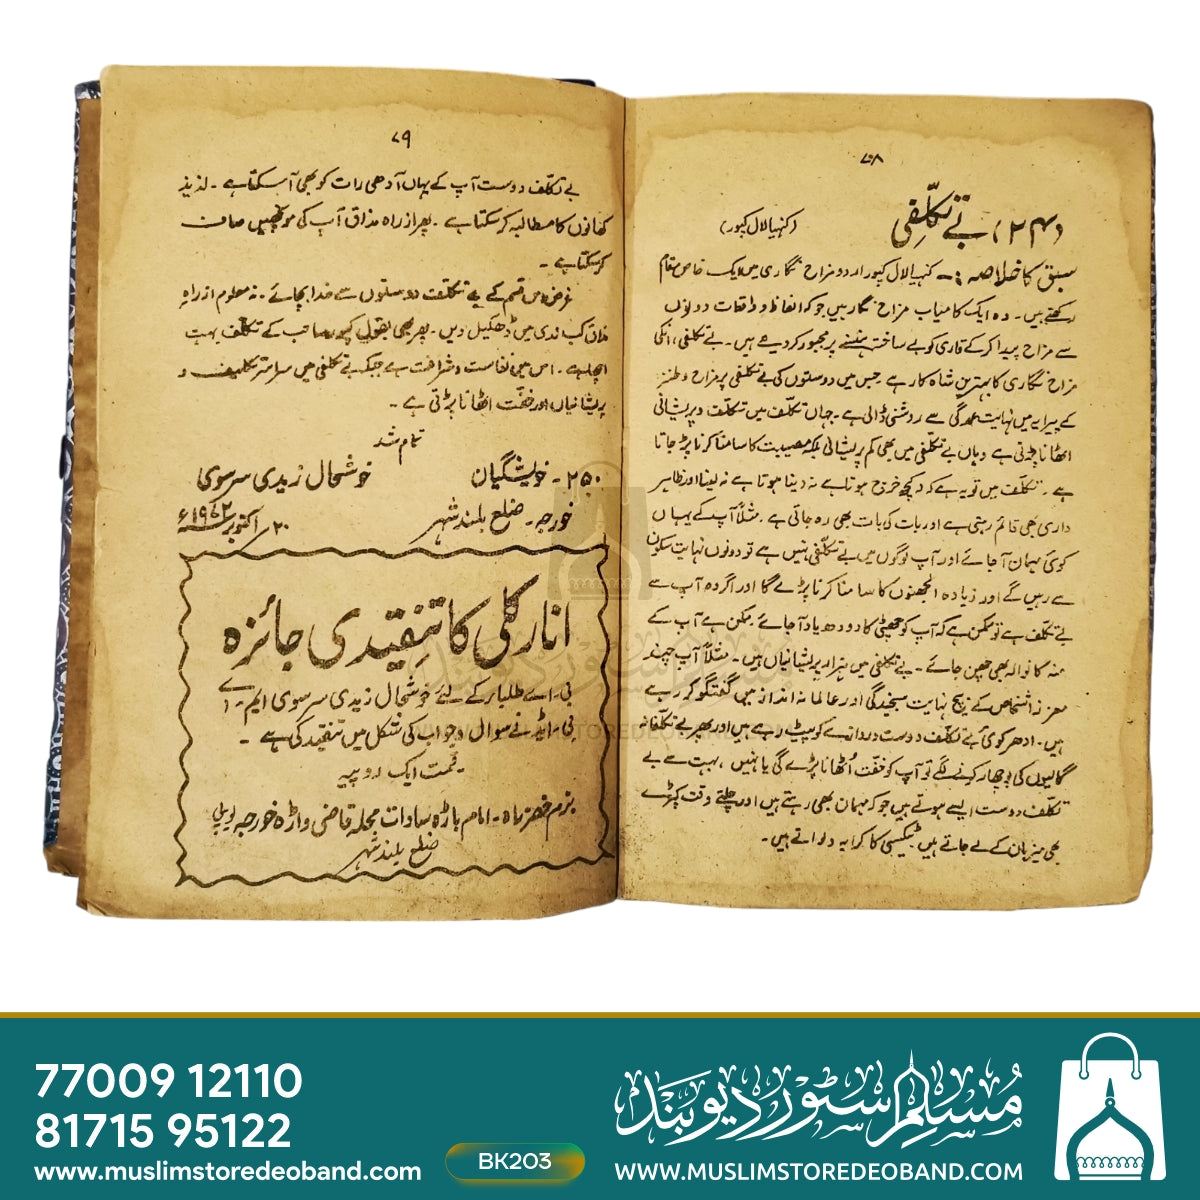 ۷۸
(۲۴) بے تکلّفی (کنہیا لال کپور)
سبق کا خلاصہ :۔ کنہیا لال کپور اردو مزاح نگاری میں ایک خاص مقام
رکھتے ہیں۔ وہ ایک کامیاب مزاح نگار ہیں جو کہ الفاظ و واقعات دونوں
سے مزاح پیدا کر کے قاری کو بے ساختہ ہنسنے پر مجبور کر دیتے ہیں۔ بے تکلفی، انکی
مزاح نگاری کا بہترین شاہ کار ہے جس میں دوستوں کی بے تکلفی پر مزاح و طنز
کے پیرایہ میں نہایت عمدگی سے روشنی ڈالی ہے۔ جہاں تکلّف میں تکلّف و پریشانی
اٹھانا پڑتی ہے وہاں بے تکلّفی میں بھی کم پریشانی بلکہ مصیبت کا سامنا کرنا پڑ جاتا
ہے۔ تکلّف میں تو یہ ہے کہ کچھ خرچ ہوتا ہے نہ دینا ہوتا ہے نہ لینا اور ظاہر
داری بھی قائم رہتی ہے اور بات کی بات بھی رہ جاتی ہے۔ مثلاً آپ کے یہاں
کوئی میہمان آ جائے اور آپ لوگوں میں بے تکلّفی نہیں ہے تو دونوں نہایت سکون
سے رہیں گے اور زیادہ الجھنوں کا سامنا کرنا پڑے گا اور اگر وہ آپ سے
بے تکلف ہے تو ممکن ہے کہ آپ کو چھٹی کا دودھ یاد آ جائے۔ ممکن ہے آپ کے
منہ کا نوالہ بھی چھن جائے۔ بے تکلفی میں ہزار پریشانیاں ہیں۔ مثلاً آپ چند
معزز اشخاص کے بیچ نہایت سنجیدگی اور عالمانہ انداز میں گفتگو کر رہے
ہیں۔ ادھر کوئی بے تکلّف دوست دروازے کو پیٹ رہے ہیں اور پھر بے تکلّفانہ
گالیوں کی بوچھار کرنے لگے تو آپ کو خفّت اُٹھانا پڑے گی یا نہیں، بہت سے بے
تکلف دوست ایسے ہوتے ہیں جو کہ مہمان بھی رہتے ہیں اور چلتے وقت کپڑے
بھی میزبان کے لے جاتے ہیں ٹیکسی کا کرایہ دلواتے ہیں۔
۷۹
بے تکلّف دوست آپ کے یہاں آدھی رات کو بھی آ سکتا ہے۔ لذیذ
کھانوں کا مطالبہ کر سکتا ہے۔ پھر از راہ مذاق آپ کی مونچھیں صاف
کر سکتا ہے۔
غرض اس قسم کے بے تکلّف دوستوں سے خدا بچائے۔ نہ معلوم از راہ
مذاق کب ندی میں ڈھکیل دیں۔ پھر بھی بقول کپور صاحب کے تکلّف بہت
اچھا ہے۔ اس میں نفاست و شرافت ہے جبکہ بے تکلّفی میں سراسر تکلیف و
پریشانیاں اور خفّت اٹھانا پڑتی ہے۔
تمام شد
۲۵۰۔ خویشگیان خوشحال زیدی سرسوی
خورجہ۔ ضلع بلند شہر ۲۰ اکتوبر ۱۹۷۲ء
انارکلی کا تنقیدی جائزہ
بی۔ اے طلباء کے لئے خوشحال زیدی سرسوی ایم۔ اے
بی۔ ایڈ نے سوال و جواب کی شکل میں تنقید کی ہے۔
قیمت ایک روپیہ
بزم خضر راہ۔ امام باڑہ سادات محلہ قاضی واڑہ خورجہ یوپی
ضلع بلند شہر
مسلم سٹور دیوبند
WWW.MUSLIMSTOREDEOBAND.COM
77009 12110
81715 95122
www.muslimstoredeoband.com
BK203
مسلم سٹور دیوبند
WWW.MUSLIMSTOREDEOBAND.COM